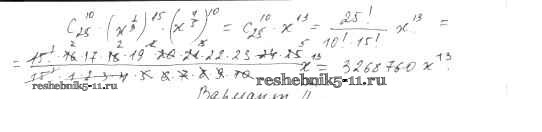 C₂₅¹⁰ · (x^{1/3})^{15} · (x^{4/5})^{10} = C₂₅¹⁰ · x¹³ = 25! / (10! · 15!) x¹³ =
= 15! · 16 · 17 · 18 · 19 · 20 · 21 · 22 · 23 · 24 · 25 / (15! · 1 · 2 · 3 · 4 · 5 · 6 · 7 · 8 · 9 · 10) x¹³ = 3268760 x¹³.
reshebnik5-11.ru
reshebnik5-11.ru
Вариант 11